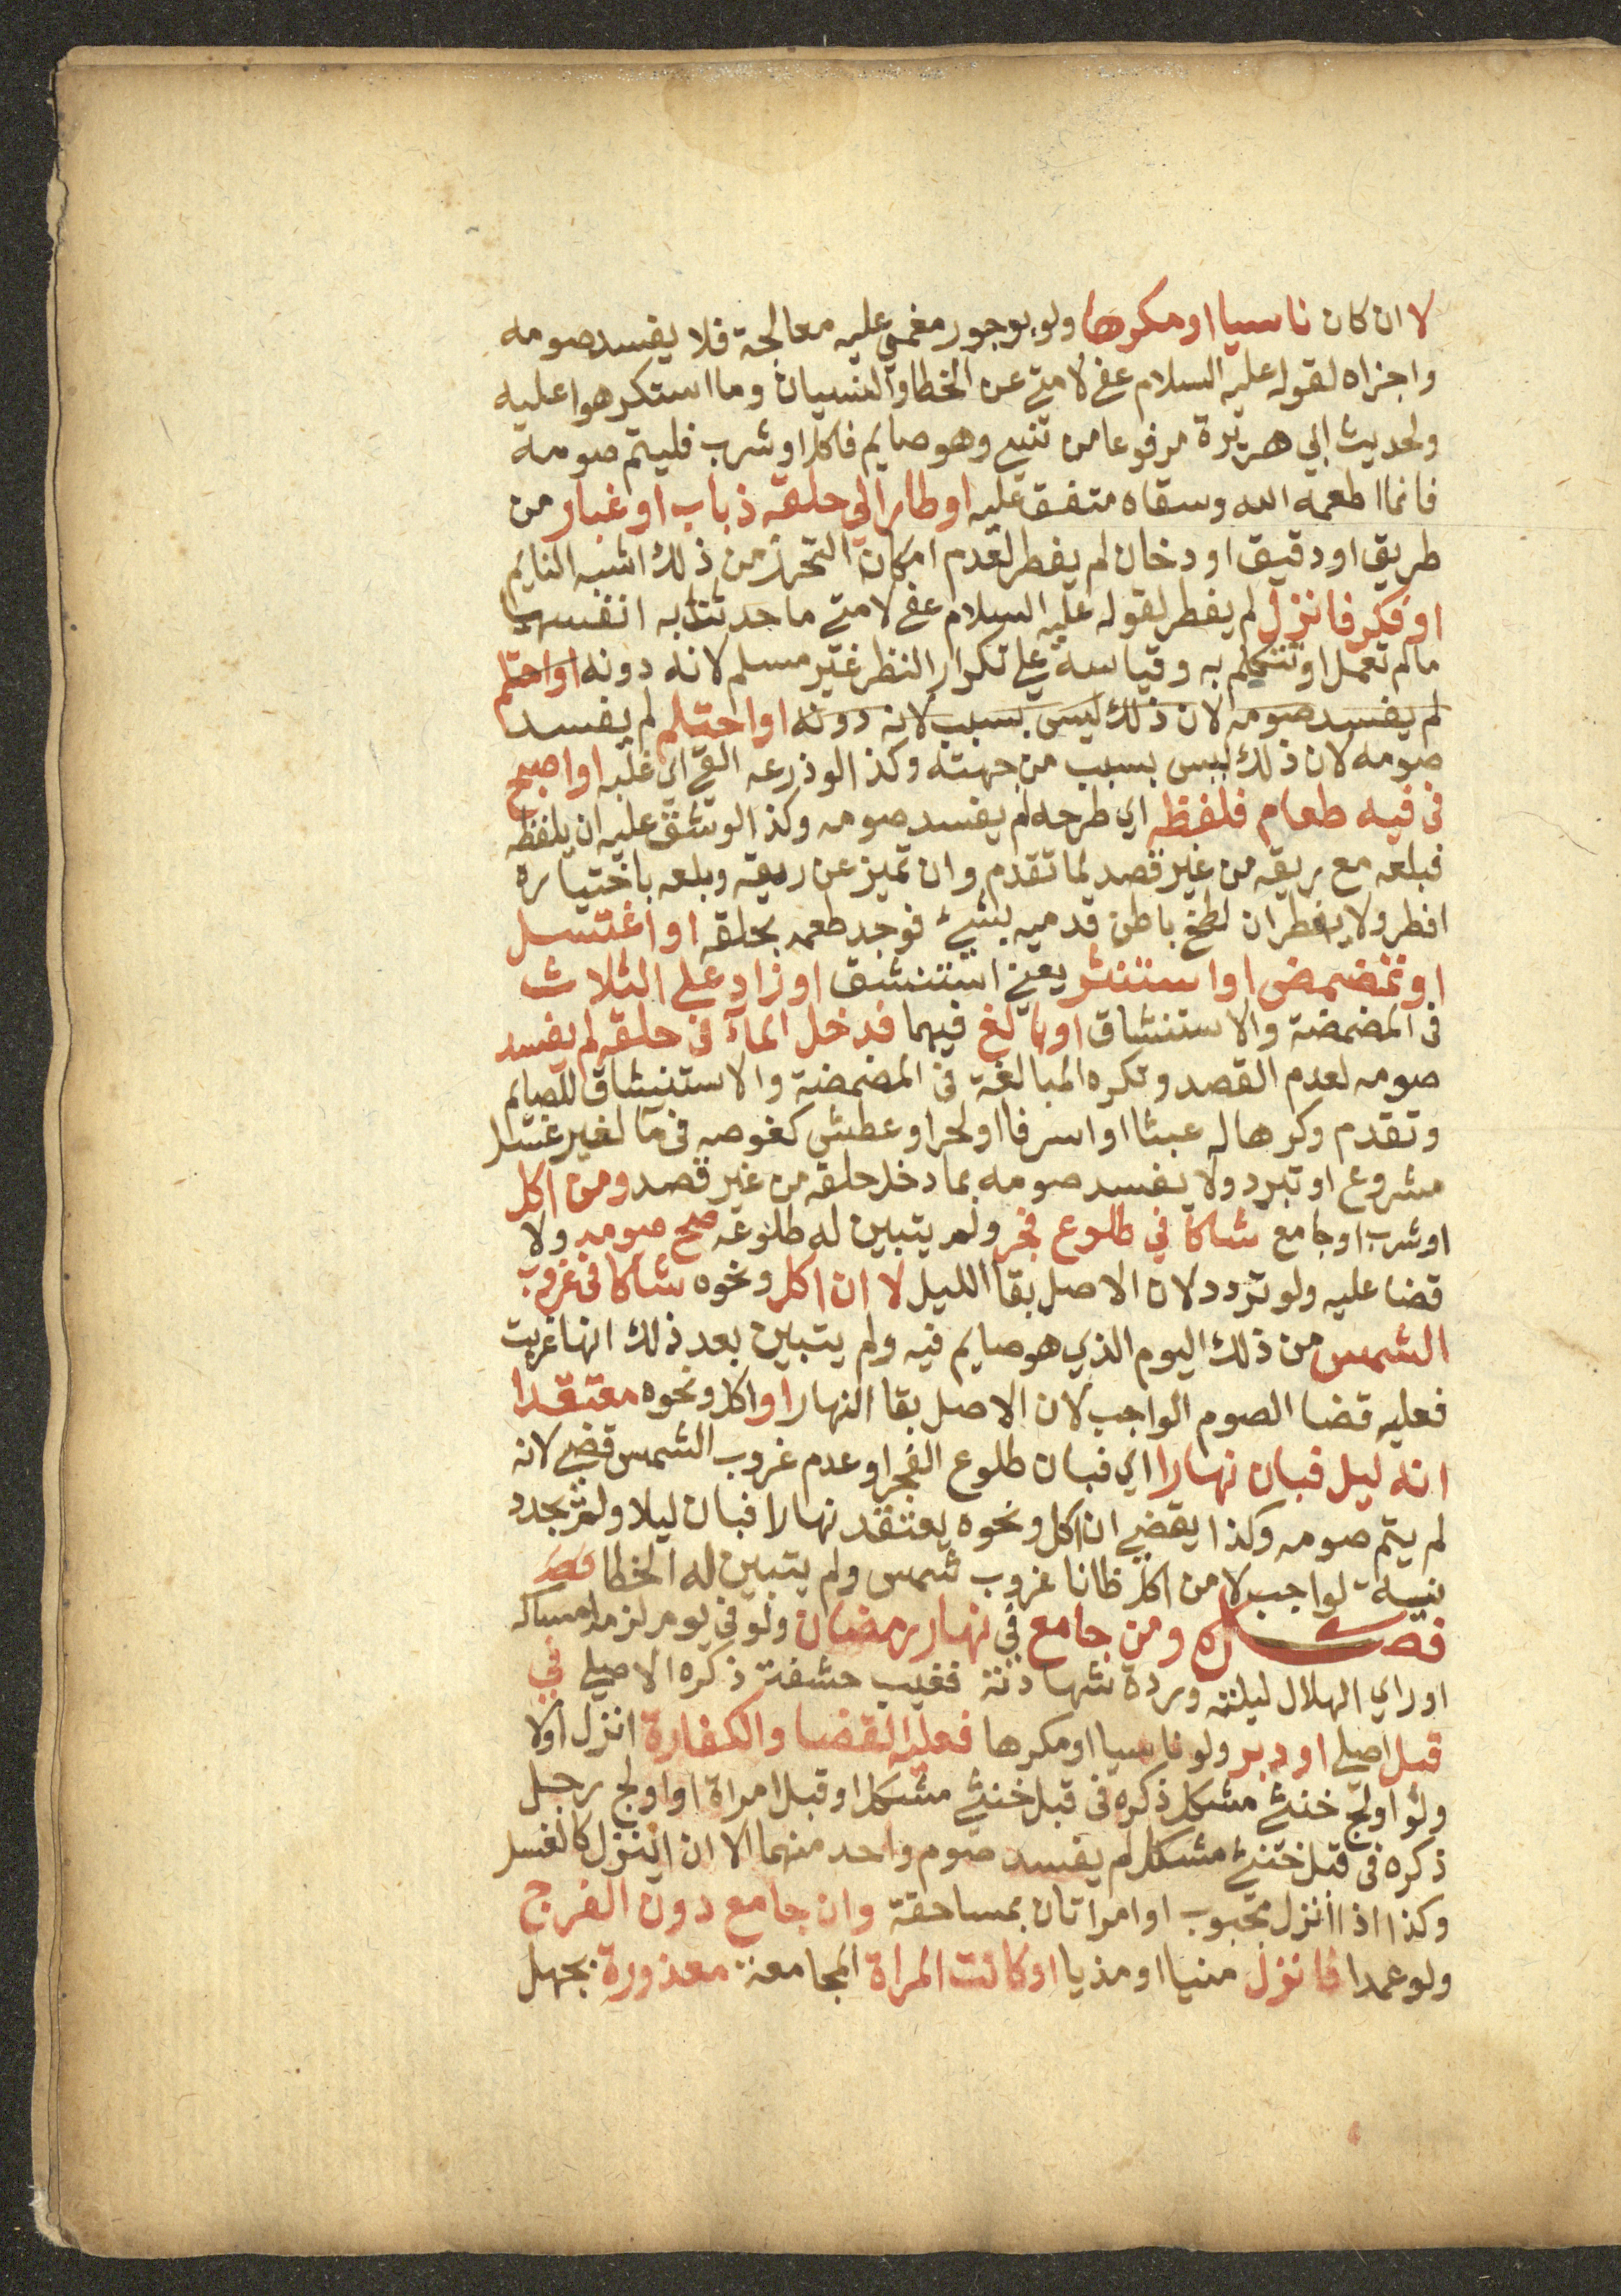 لا ان كان ناسيا او مكرها ولو بوجور مغمى عليه معالجة فلا يفسد صومه
واجزاه لقوله عليه السلام عفى لامتي عن الخطا والنسيان وما استكرهوا عليه
ولحديث ابي هريرة مرفوعا من نسي وهو صايم فاكل او شرب فليتم صومه
فانما اطعمه الله وسقاه متفق عليه او طار الي حلقه ذباب او غبار من
طريق او دقيق او دخان لم يفطر لعدم امكان التحرز من ذلك اشبه النايم
او فكر فانزل لم يفطر لقوله عليه السلام عفي لامتي ما حدثت به انفسها
ما لم تعمل او تتكلم به وقياسه علي تكرار النظر غير مسلم لانه دونه او احتلم
لم يفسد صومه لان ذلك ليس بسبب لانه دونه او احتلم لم يفسد
صومه لان ذلك ليس بسبب من جهته وكذا لو ذرعه القي اي غلبه او اصبح
في فيه طعام فلفظه اي طرحه لم يفسد صومه وكذا لو شق عليه ان يلفظه
فبلعه مع ريقه من غير قصد لما تقدم وان تميز عن ريقه وبلعه باختياره
افطر ولا يفطر ان لطخ باطن قدميه بشيء فوجد طعمه بحلقه او اغتسل
او تمضمض او استنثر يعني استنشق او زاد علي الثلاث
في المضمضة والاستنشاق او بالغ فيهما فدخل الماء في حلقه لم يفسد
صومه لعدم القصد وتكره المبالغة في المضمضة والاستنشاق للصايم
وتقدم وكرها له عبثا او اسرفا او لحر او عطش كغوصه في ما لغير غسل
مشروع او تبرد ولا يفسد صومه بما دخل حلقه من غير قصد ومن اكل
او شرب او جامع شاكا في طلوع فجر ولم يتبين له طلوعه صح صومه ولا
قضا عليه ولو تردد لان الاصل بقا الليل لا ان اكل ونحوه شاكا في غروب
الشمس من ذلك اليوم الذي هو صايم فيه ولم يتبين بعد ذلك انها غربت
فعليه قضا الصوم الواجب لان الاصل بقا النهار او اكل ونحوه معتقدا
انه ليل فبان نهارا اي فبان طلوع الفجر او عدم غروب الشمس قضي لانه
لم يتم صومه وكذا يقضي ان اكل ونحوه يعتقد نهارا فبان ليلا ولم يجدد
نية لواجب لا من اكل ظانا غروب شمس ولم يتبين له الخطا
فصل ومن جامع في نهار رمضان ولو في يوم لزمه امساكه
او راي الهلال ليلته وردة شهادته فغيب حشفة ذكره الاصلي في
قبل اصلي او دبر ولو ناسيا او مكرها فعليه القضا والكفارة انزل اولا
ولو اولج خنثي مشكل ذكره في قبل خنثي مشكل او قبل امراة او اولج رجل
ذكره في قبل خنثي مشكل لم يفسد صوم واحد منهما الا ان انزل كالغسل
وكذا اذا انزل مجبوب او امراتان بمساحقة وان جامع دون الفرج
ولو عمدا فانزل منيا او مذيا او كانت المراة المجامعة معذورة بجهل